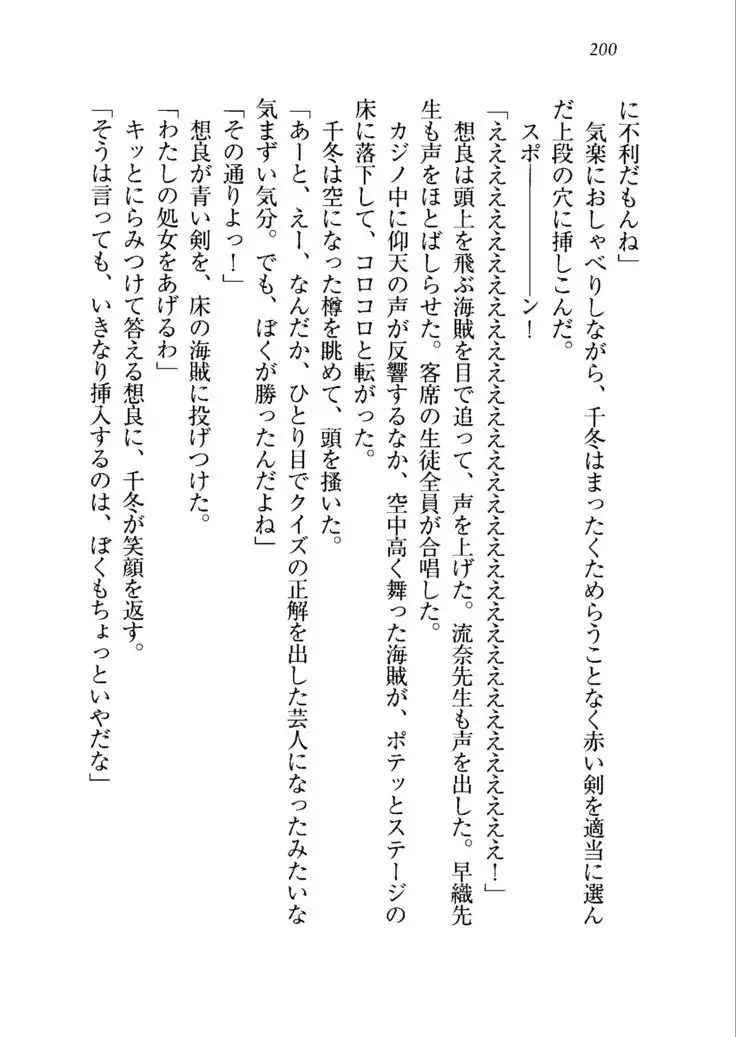 200
に不利だもんね」
気楽におしゃべりしながら、千冬はまったくためらうことなく赤い剣を適当に選ん
だ上段の穴に挿しこんだ。
スポ――――ン！
「ええええええええええええええええええええええええええええええええええ！」
想良は頭上を飛ぶ海賊を目で追って、声を上げた。流奈先生も声を出した。早織先
生も声をほとばしらせた。客席の生徒全員が合唱した。
カジノ中に仰天の声が反響するなか、空中高く舞った海賊が、ポテッとステージの
床に落下して、コロコロと転がった。
千冬は空になった樽を眺めて、頭を掻いた。
「あーと、えー、なんだか、ひとり目でクイズの正解を出した芸人になったみたいな
気まずい気分。でも、ぼくが勝ったんだよね」
「その通りよっ！」
想良が青い剣を、床の海賊に投げつけた。
「わたしの処女をあげるわ」
キッとにらみつけて答える想良に、千冬が笑顔を返す。
「そうは言っても、いきなり挿入するのは、ぼくもちょっといやだな」